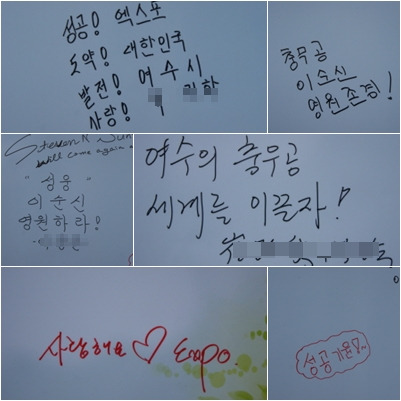 성공! 엑스포
도약! 대한민국
발전! 여수시
사랑!
충무공
이순신
영원존경!
Steven
will come again!
" 성웅 "
이순신
영원하라!
여수의 충무공
세계를 이끌자!
사랑해요 ♡ Expo
성공기원!